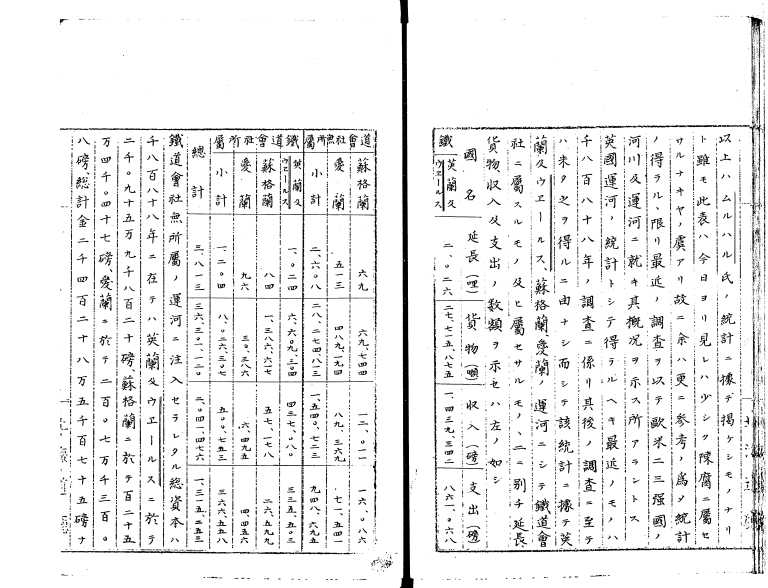 以上ハムルハル氏ノ統計ニ據テ揭ケシモノナリ
ト雖モ此表ハ今日ヨリ見レハ少シク陳腐ニ屬セ
サルナキヤノ虞アリ故ニ余ハ更ニ參考ノ爲メ統計
ノ得ラルヽ限リ最近ノ調査ヲ以テ歐米二三强國ノ
河川及運河ニ就キ其槪况ヲ示ス所アラントス
英國運河ノ統計トシテ得ラルヘキ最近ノモノハ
千八百八十八年ノ調査ニ係リ其後ノ調査ニ至テ
ハ未タ之ヲ得ルニ由ナシ而シテ該統計ニ據テ英
蘭及ウエールス、蘇格蘭愛蘭ノ運河ニシテ鐵道會
社ニ屬スルモノ及ヒ屬セサルモノヽ二ニ別チ延長
貨物收入及支出ノ數額ヲ示セハ左ノ如シ
國名 延長(哩) 貨物(噸) 收入(磅) 支出(磅)
鐵 英蘭及ウエールス 二、〇二六 二七、七二五、八七五 一、四三九、三四二 八六一、〇六八
道會社無所屬 蘇格蘭 六九 六九、七四四 一二、〇一一 一六、〇八六
愛蘭 五一三 四八九、一九四 八九、三六九 七一、五四一
小計 二、六〇八 二八、二七四、八一三 一、五四〇、七二三 九四八、六九五
鐵道會社所屬 英蘭及ウエールス 一、〇二四 六、六〇九、三〇四 四三七、〇八〇 三三五、五〇三
蘇格蘭 八四 一、三八六、六一七 五七、一七八 二六、五九九
愛蘭 九六 三〇、三八六 六、四九五 四、四五六
小計 一、二〇四 八、〇二六、三〇七 五〇〇、七五三 三六六、五五八
總計 三、八一三 三六、三〇一、一二〇 二、〇四一、四七六 一、三一五、二五三
鐵道會社無所屬ノ運河ニ注入セラレタル總資本ハ
千八百八十八年ニ在テハ英蘭及ウエールスニ於テ
二千〇九十五万九千八百二十磅、蘇格蘭ニ於テ百二十五
万四千〇四十七磅、愛蘭ニ於テ二百〇七万千三百〇
八磅總計金二千四百二十八万五千百七十五磅ナ